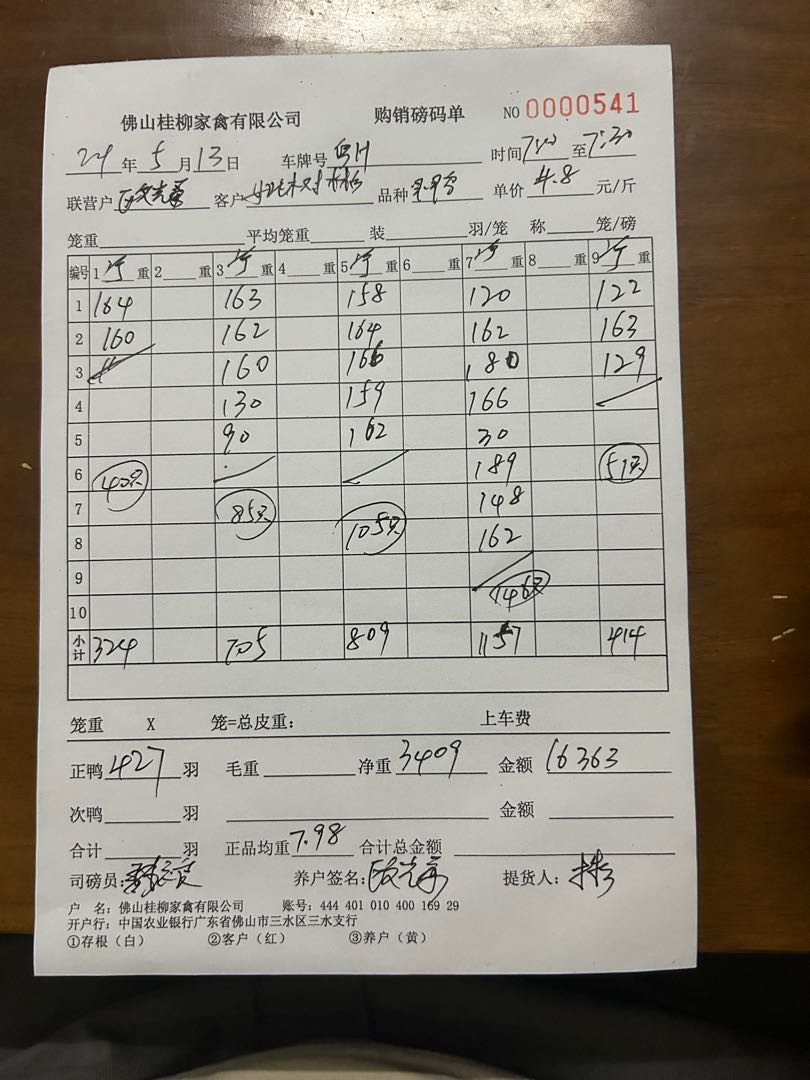 佛山桂柳家禽有限公司 购销磅码单 NO 0000541
24年5月13日 车牌号 时间7:00至7:30
联营户 客户 品种 单价4.8元/斤
笼重 平均笼重 装 羽/笼 称 笼/磅
编号 1 重 2 重 3 重 4 重 5 重 6 重 7 重 8 重 9 重
1 164 163 158 120 122
2 160 162 164 162 163
3 160 166 180 129
4 130 159 166
5 90 162 30
6 40只 189 51只
7 85只 148
8 105只 162
9 146只
10
小计 324 705 809 1157 414
笼重 X 笼=总皮重: 上车费
正鸭427羽 毛重 净重3409 金额16363
次鸭 羽 金额
合计 羽 正品均重7.98 合计总金额
司磅员: 养户签名: 提货人:
户 名:佛山桂柳家禽有限公司 账号:444 401 010 400 169 29
开户行:中国农业银行广东省佛山市三水区三水支行
①存根(白) ②客户(红) ③养户(黄)